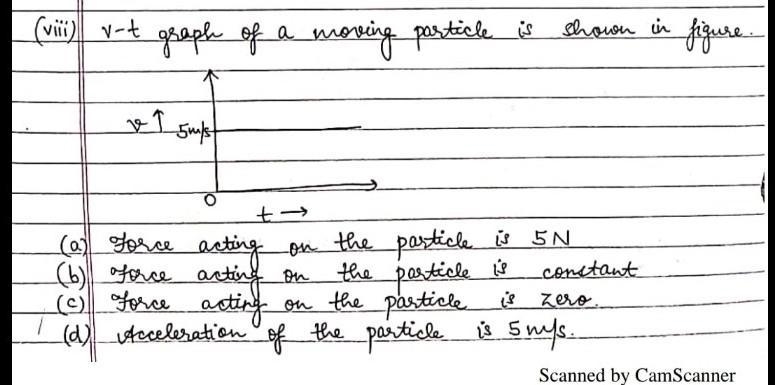 (viii) v-t graph of a moving particle is shown in figure.
v ↑ 5m/s
O
t →
(a) Force acting on the particle is 5N
(b) Force acting on the particle is constant
(c) Force acting on the particle is zero.
(d) Acceleration of the particle is 5 m/s.
Scanned by CamScanner